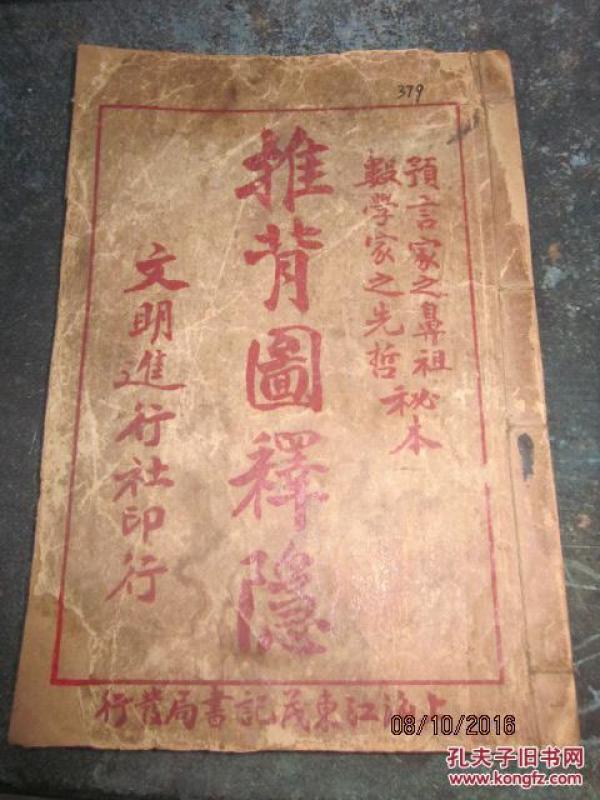 379
預言家之鼻祖
數學家之先哲
秘本
推背圖釋隱
文明進行社印行
上海江東茂記書局發行
08/10/2016
孔夫子旧书网
www.kongfz.com